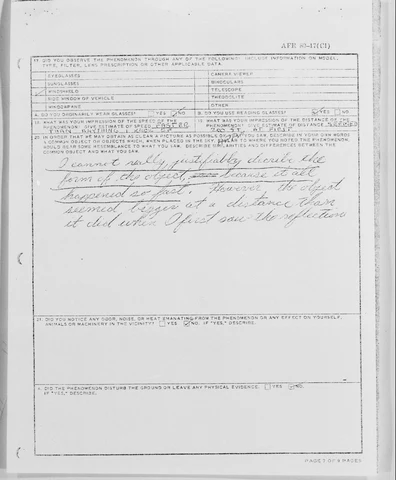 AFR 80-17(C1)
17. DID YOU OBSERVE THE PHENOMENON THROUGH ANY OF THE FOLLOWING? INCLUDE INFORMATION ON MODEL, TYPE, FILTER, LENS PRESCRIPTION OR OTHER APPLICABLE DATA.
EYEGLASSES CAMERA VIEWER
SUNGLASSES BINOCULARS
WINDSHIELD TELESCOPE
SIDE WINDOW OF VEHICLE THEODOLITE
WINDOWPANE OTHER
A. DO YOU ORDINARILY WEAR GLASSES? YES NO B. DO YOU USE READING GLASSES? YES NO
18. WHAT WAS YOUR IMPRESSION OF THE SPEED OF THE PHENOMENON? GIVE ESTIMATE OF SPEED FASTER THAN ANYTHING I
19. WHAT WAS YOUR IMPRESSION OF THE DISTANCE OF THE PHENOMENON? GIVE ESTIMATE OF DISTANCE SEEMED 200 FT. AT FIRST
20. IN ORDER THAT WE MAY OBTAIN AS CLEAR A PICTURE AS POSSIBLE OF WHAT YOU SAW, DESCRIBE IN YOUR OWN WORDS A COMMON OBJECT OR OBJECTS WHICH, WHEN PLACED IN THE SKY, WOULD BEAR SOME RESEMBLANCE TO WHAT YOU SAW. DESCRIBE SIMILARITIES AND DIFFERENCES BETWEEN THE COMMON OBJECT AND WHAT YOU SAW.
I cannot really, justifiably describe the
form of the object, because it all
happened so fast. However, the object
seemed bigger at a distance than
it did when I first saw the reflection
21. DID YOU NOTICE ANY ODOR, NOISE, OR HEAT EMANATING FROM THE PHENOMENON OR ANY EFFECT ON YOURSELF, ANIMALS OR MACHINERY IN THE VICINITY? YES NO. IF "YES," DESCRIBE.
DID THE PHENOMENON DISTURB THE GROUND OR LEAVE ANY PHYSICAL EVIDENCE. YES NO.
IF "YES", DESCRIBE.